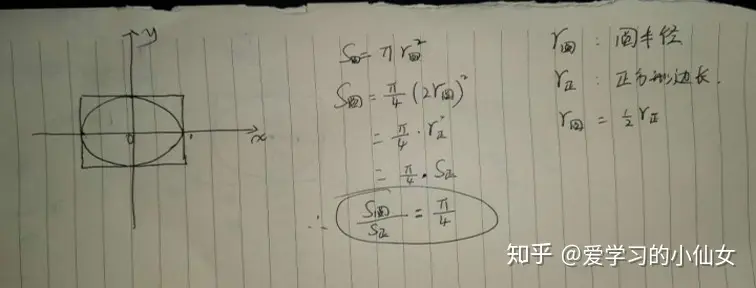 y
0
x
S圆 = π r圆²
S圆 = π/4 (2r圆)²
= π/4 · r正²
= π/4 · S正
∴ S圆/S正 = π/4
r圆 : 圆半径
r正 : 正方形边长.
r圆 = 1/2 r正
知乎 @爱学习的小仙女